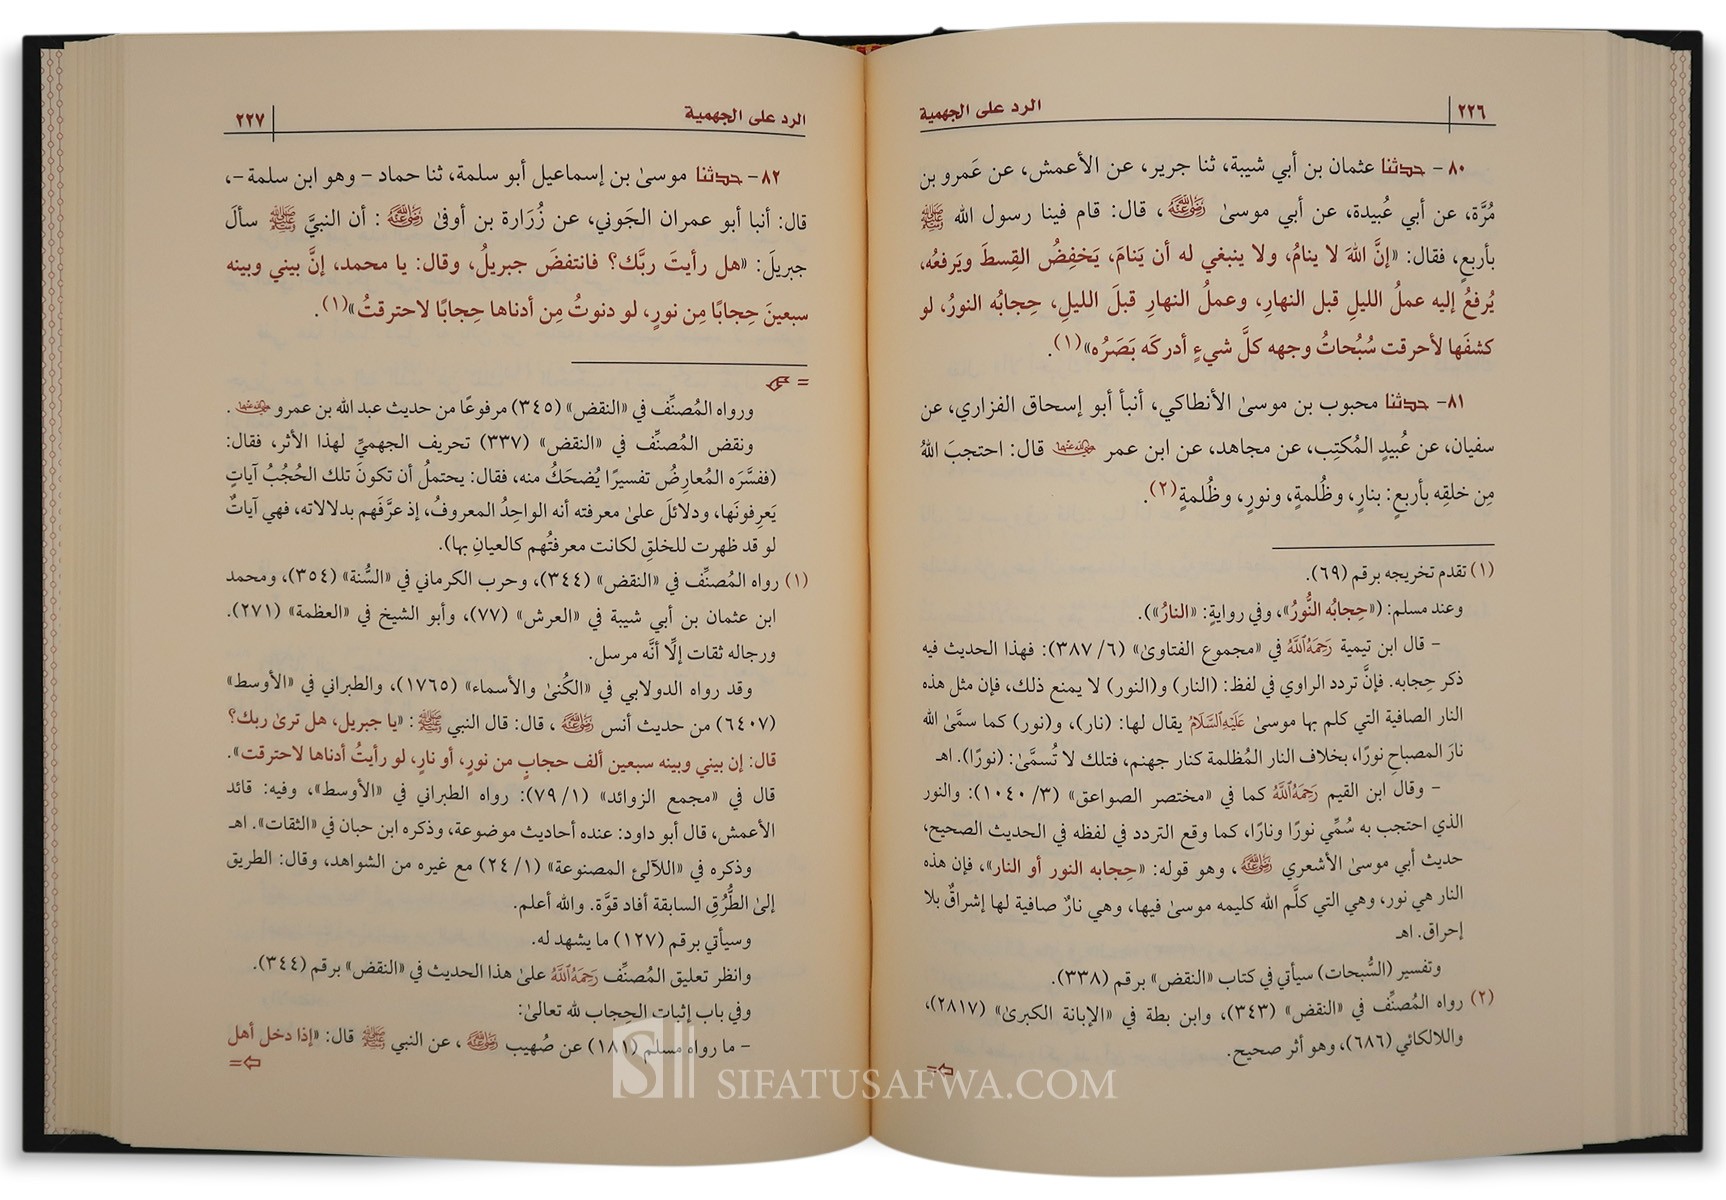 ٢٢٦ الرد على الجهمية
٨٠- حدثنا عثمان بن أبي شيبة، ثنا جرير، عن الأعمش، عن عَمرو بن
مُرَّة، عن أبي عُبيدة، عن أبي موسىٰ رضي الله عنه، قال: قام فينا رسول الله ﷺ
بأربعٍ، فقال: «إنَّ اللهَ لا ينامُ، ولا ينبغي له أن يَنامَ، يَخفِضُ القِسطَ ويَرفعُه،
يُرفعُ إليه عملُ الليلِ قبل النهارِ، وعملُ النهارِ قبلَ الليلِ، حِجابُه النورُ، لو
كشفَها لأحرقت سُبُحاتُ وجهه كلَّ شيءٍ أدركَه بَصَرُه»(١).
٨١- حدثنا محبوب بن موسىٰ الأنطاكي، أنبأ أبو إسحاق الفزاري، عن
سفيان، عن عُبيدٍ المُكتِب، عن مجاهد، عن ابن عمر رضي الله عنهما قال: احتجبَ اللهُ
مِن خلقِه بأربعٍ: بنارٍ، وظُلمةٍ، ونورٍ، وظُلمةٍ(٢).
(١) تقدم تخريجه برقم (٦٩).
وعند مسلم: («حِجابُه النُّورُ»، وفي روايةٍ: «النارُ»).
- قال ابن تيمية رَحِمَهُ ٱللَّهُ في «مجموع الفتاوىٰ» (٦/ ٣٨٧): فهذا الحديث فيه
ذكر حِجابه. فإنَّ تردد الراوي في لفظ: (النار) و(النور) لا يمنع ذلك، فإن مثل هذه
النار الصافية التي كلم بها موسىٰ عَلَيْهِ ٱلسَّلَامُ يقال لها: (نار)، و(نور) كما سمَّىٰ الله
نارَ المصباحِ نورًا، بخلاف النار المُظلمة كنار جهنم، فتلك لا تُسمَّىٰ: (نورًا). اهـ
- وقال ابن القيم رَحِمَهُ ٱللَّهُ كما في «مختصر الصواعق» (٣/ ١٠٤٠): والنور
الذي احتجب به سُمِّي نورًا ونارًا، كما وقع التردد في لفظه في الحديث الصحيح،
حديث أبي موسىٰ الأشعري رضي الله عنه، وهو قوله: «حِجابه النور أو النار»، فإن هذه
النار هي نور، وهي التي كلَّم الله كليمه موسىٰ فيها، وهي نارٌ صافية لها إشراقٌ بلا
إحراق. اهـ
وتفسير (السُّبحات) سيأتي في كتاب «النقض» برقم (٣٣٨).
(٢) رواه المُصنِّف في «النقض» (٣٤٣)، وابن بطة في «الإبانة الكبرىٰ» (٢٨١٧)،
واللالكائي (٦٨٦)، وهو أثر صحيح.
=
الرد على الجهمية ٢٢٧
٨٢- حدثنا موسىٰ بن إسماعيل أبو سلمة، ثنا حماد - وهو ابن سلمة -،
قال: أنبا أبو عمران الجَوني، عن زُرَارة بن أوفىٰ رضي الله عنه: أن النبيَّ ﷺ سألَ
جبريلَ: «هل رأيتَ ربَّك؟ فانتفضَ جبريلُ، وقال: يا محمد، إنَّ بيني وبينه
سبعينَ حِجابًا مِن نورٍ، لو دنوتُ مِن أدناها حِجابًا لاحترقتُ»(١).
=
ورواه المُصنِّف في «النقض» (٣٤٥) مرفوعًا من حديث عبد الله بن عمرو رضي الله عنهما.
ونقض المُصنِّف في «النقض» (٣٣٧) تحريف الجهميِّ لهذا الأثر، فقال:
(ففسَّرَه المُعارِضُ تفسيرًا يُضحَكُ منه، فقال: يحتملُ أن تكونَ تلك الحُجُبُ آياتٍ
يَعرِفونَها، ودلائلَ علىٰ معرفته أنه الواحِدُ المعروفُ، إذ عرَّفَهم بدلالاته، فهي آياتٌ
لو قد ظهرت للخلقِ لكانت معرفتُهم كالعيانِ بها).
(١) رواه المُصنِّف في «النقض» (٣٤٤)، وحرب الكرماني في «السُّنة» (٣٥٤)، ومحمد
ابن عثمان بن أبي شيبة في «العرش» (٧٧)، وأبو الشيخ في «العظمة» (٢٧١).
ورجاله ثقات إلَّا أنَّه مرسل.
وقد رواه الدولابي في «الكُنىٰ والأسماء» (١٧٦٥)، والطبراني في «الأوسط»
(٦٤٠٧) من حديث أنس رضي الله عنه، قال: قال النبي ﷺ: «يا جبريل، هل ترىٰ ربك؟
قال: إن بيني وبينه سبعين ألف حجابٍ من نورٍ، أو نارٍ، لو رأيتُ أدناها لاحترقت».
قال في «مجمع الزوائد» (١/ ٧٩): رواه الطبراني في «الأوسط»، وفيه: قائد
الأعمش، قال أبو داود: عنده أحاديث موضوعة، وذكره ابن حبان في «الثقات». اهـ
وذكره في «اللآلئ المصنوعة» (١/ ٢٤) مع غيره من الشواهد، وقال: الطريق
إلىٰ الطُّرُقِ السابقة أفاد قوَّة. والله أعلم.
وسيأتي برقم (١٢٧) ما يشهد له.
وانظر تعليق المُصنِّف رَحِمَهُ ٱللَّهُ علىٰ هذا الحديث في «النقض» برقم (٣٤٤).
وفي باب إثبات الحِجاب لله تعالىٰ:
- ما رواه مسلم (١٨١) عن صُهيب رضي الله عنه، عن النبي ﷺ قال: «إذا دخل أهل
=
SIFATUSAFWA.COM